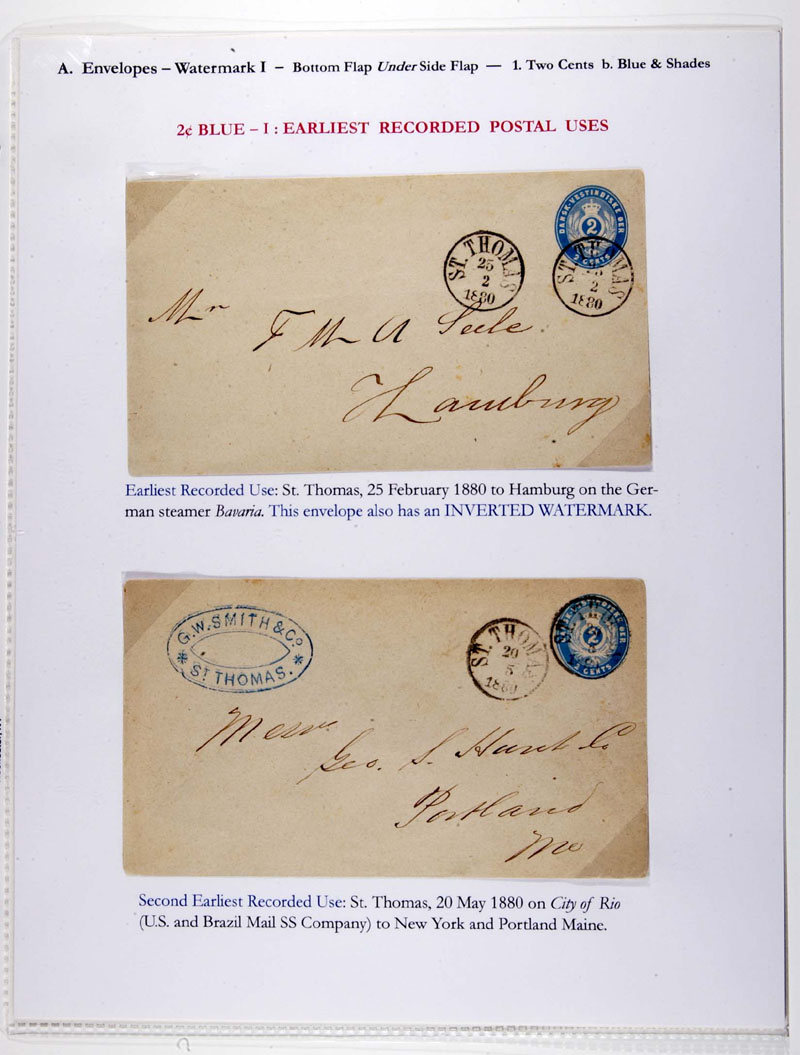 A. Envelopes – Watermark I – Bottom Flap Under Side Flap — 1. Two Cents b. Blue & Shades
2¢ BLUE – I : EARLIEST RECORDED POSTAL USES
DANSK-VESTINDISKE ØER
2
2 CENTS
ST. THOMAS
25
2
1880
ST. THOMAS
2
1880
Mr
F M A Seele
Hamburg
Earliest Recorded Use: St. Thomas, 25 February 1880 to Hamburg on the Ger-
man steamer Bavaria. This envelope also has an INVERTED WATERMARK.
G.W. SMITH & Co
ST THOMAS.
ST. THOMAS
20
5
1880
2
2 CENTS
Messrs
Geo. S. Hunt Co
Portland
Me
Second Earliest Recorded Use: St. Thomas, 20 May 1880 on City of Rio
(U.S. and Brazil Mail SS Company) to New York and Portland Maine.